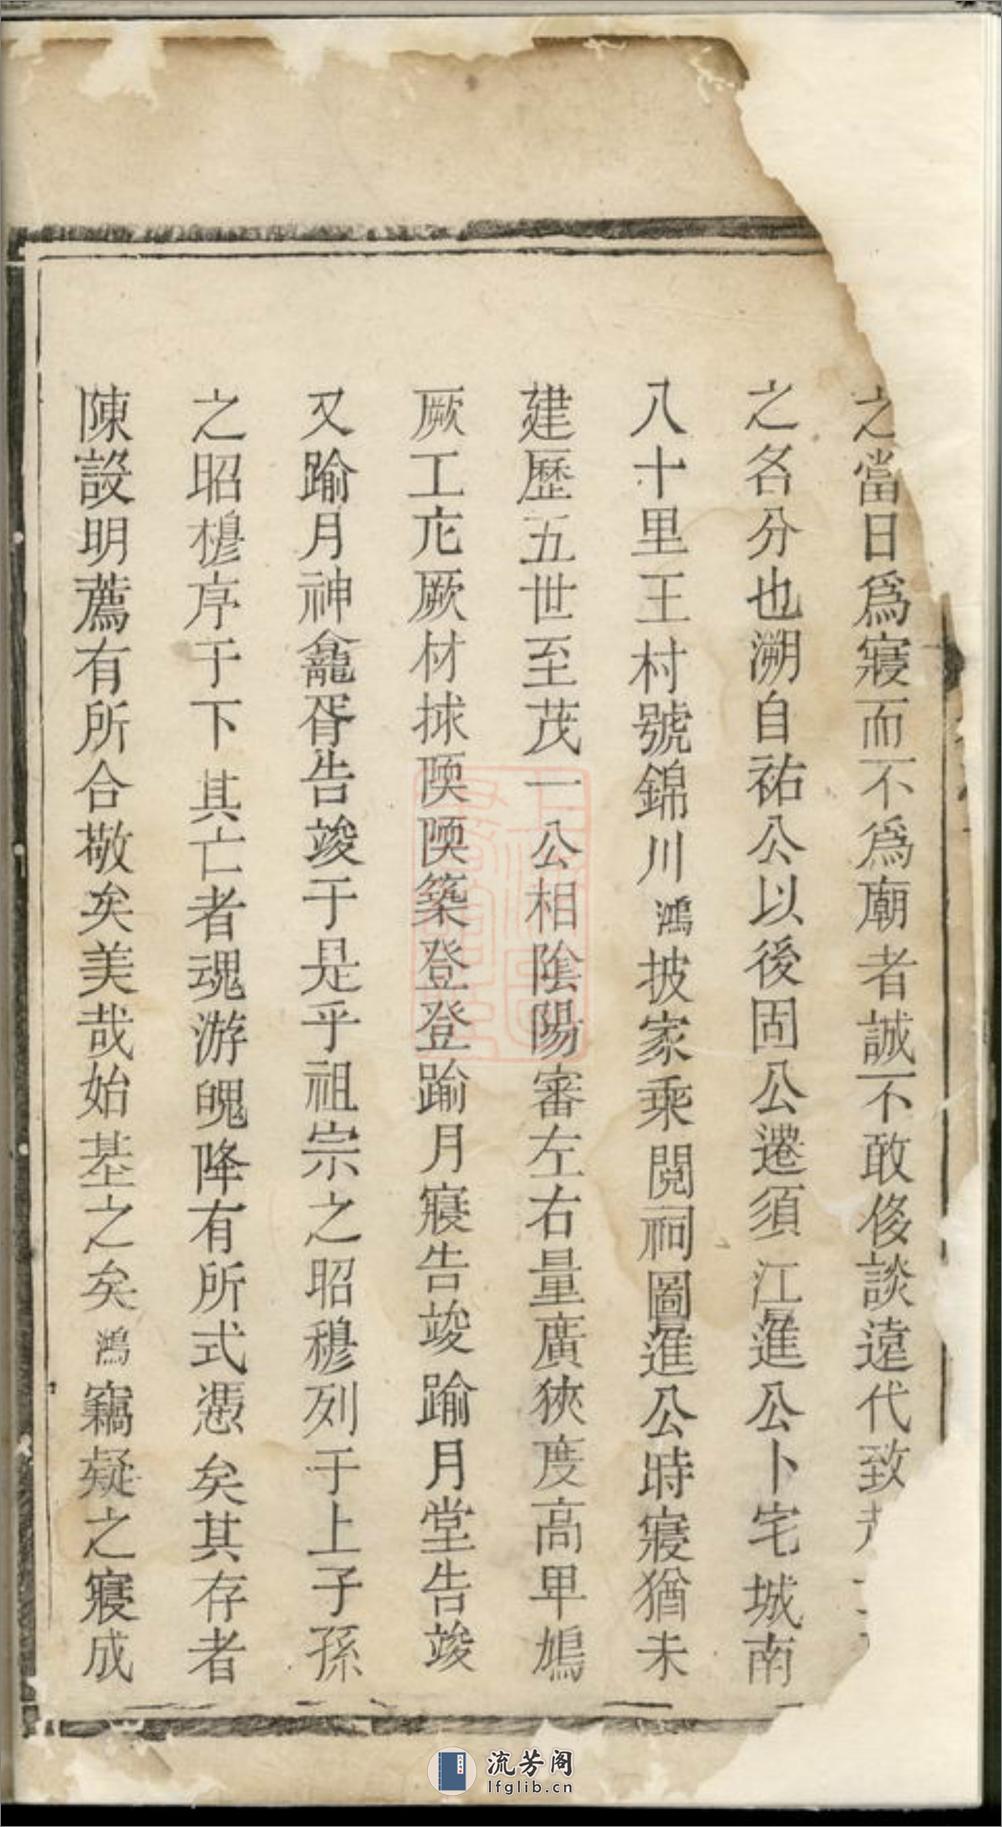 之當日爲寢而不爲廟者誠不敢侈談遠代致
之各分也溯自祐公以後固公遷須江進公卜宅城南
八十里王村號錦川鴻披家乘閱祠圖進公時寢猶未
建歷五世至茂一公相陰陽審左右量廣狹度高卑鳩
厥工庀厥材捄陾陾築登登踰月寢告竣踰月堂告竣
又踰月神龕胥告竣于是乎祖宗之昭穆列于上子孫
之昭穆序于下其亡者魂游魄降有所式憑矣其存者
陳設明薦有所合敬矣美哉始基之矣鴻竊疑之寢成
流芳阁
lfglib.cn